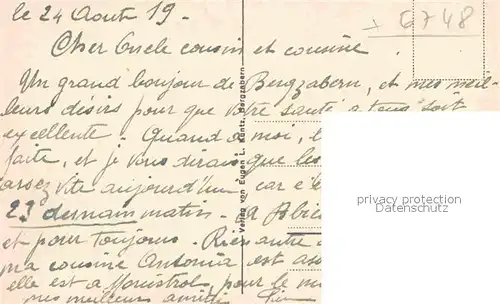 le 24 Aout 19 -
6748
Cher Oncle cousin et cousine.
Un grand bonjour de Bergzabern, et mes meil-
leurs désirs pour que votre santé à tous soit
excellente. Quand à moi,
faite, et je vous dirais que les
assez vite aujourd'hui car c'é
23 demain matin -
et pour toujours. Rien autre
ma cousine Antonia est
elle est à Monistrol pour le
mes meilleurs
Verlag von Eugen L. Kuntz, Bergzabern.
privacy protection
Datenschutz